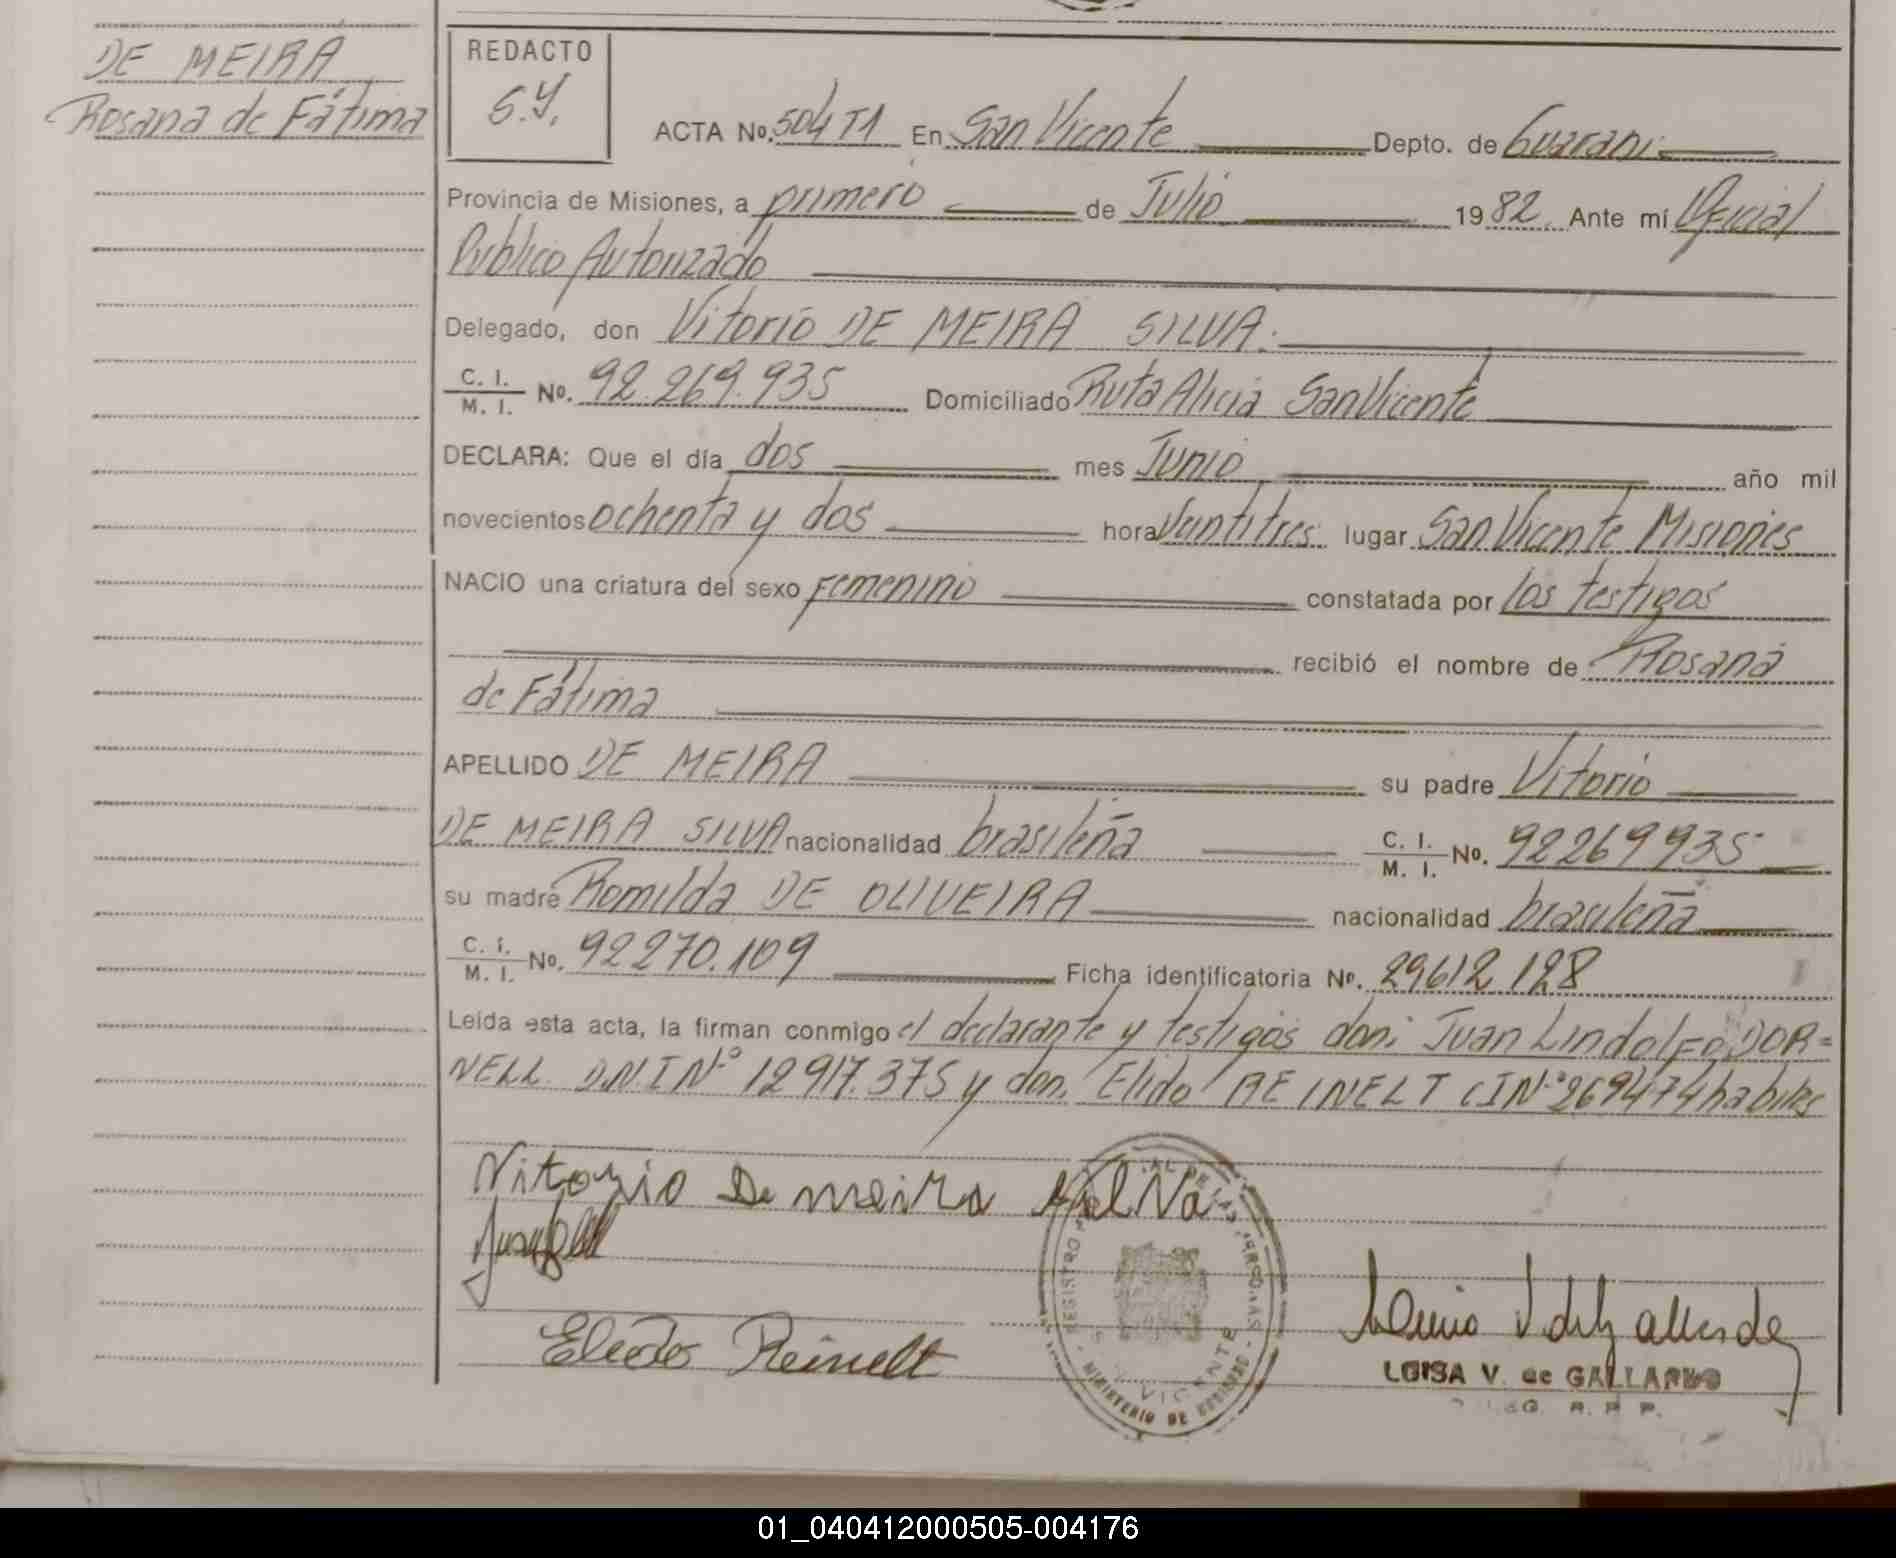 DE MEIRA
Rosana de Fátima
REDACTO
S.Y.
ACTA No. 504 T1 En San Vicente Depto. de Guaraní
Provincia de Misiones, a primero de Julio 1982 Ante mí Oficial
Publico Autorizado
Delegado, don Vitorio DE MEIRA SILVA.
C. I. / M. I. No. 92.269.935 Domiciliado Ruta Alicia San Vicente
DECLARA: Que el día dos mes Junio año mil
novecientos ochenta y dos hora Veintitres lugar San Vicente Misiones
NACIO una criatura del sexo Femenino constatada por los testigos
recibió el nombre de Rosana
de Fátima
APELLIDO DE MEIRA su padre Vitorio
DE MEIRA SILVA nacionalidad brasileña C. I. / M. I. No. 92269935
su madre Romilda DE OLIVEIRA nacionalidad brasileña
C. I. / M. I. No. 92270.109 Ficha identificatoria No. 29612128
Leida esta acta, la firman conmigo el declarante y testigos don: Juan Lindolfo DOR=
NELL D.N.I Nº 12917.375 y don. Elido REINELT CI Nº 269474 habiles
Vitorio De meira Silva
Eliedo Reinelt
REGISTRO DE LAS PERSONAS
S. VICENTE
MINISTERIO DE GOBIERNO
LUISA V. de GALLARDO
R. P. P.
01_040412000505-004176